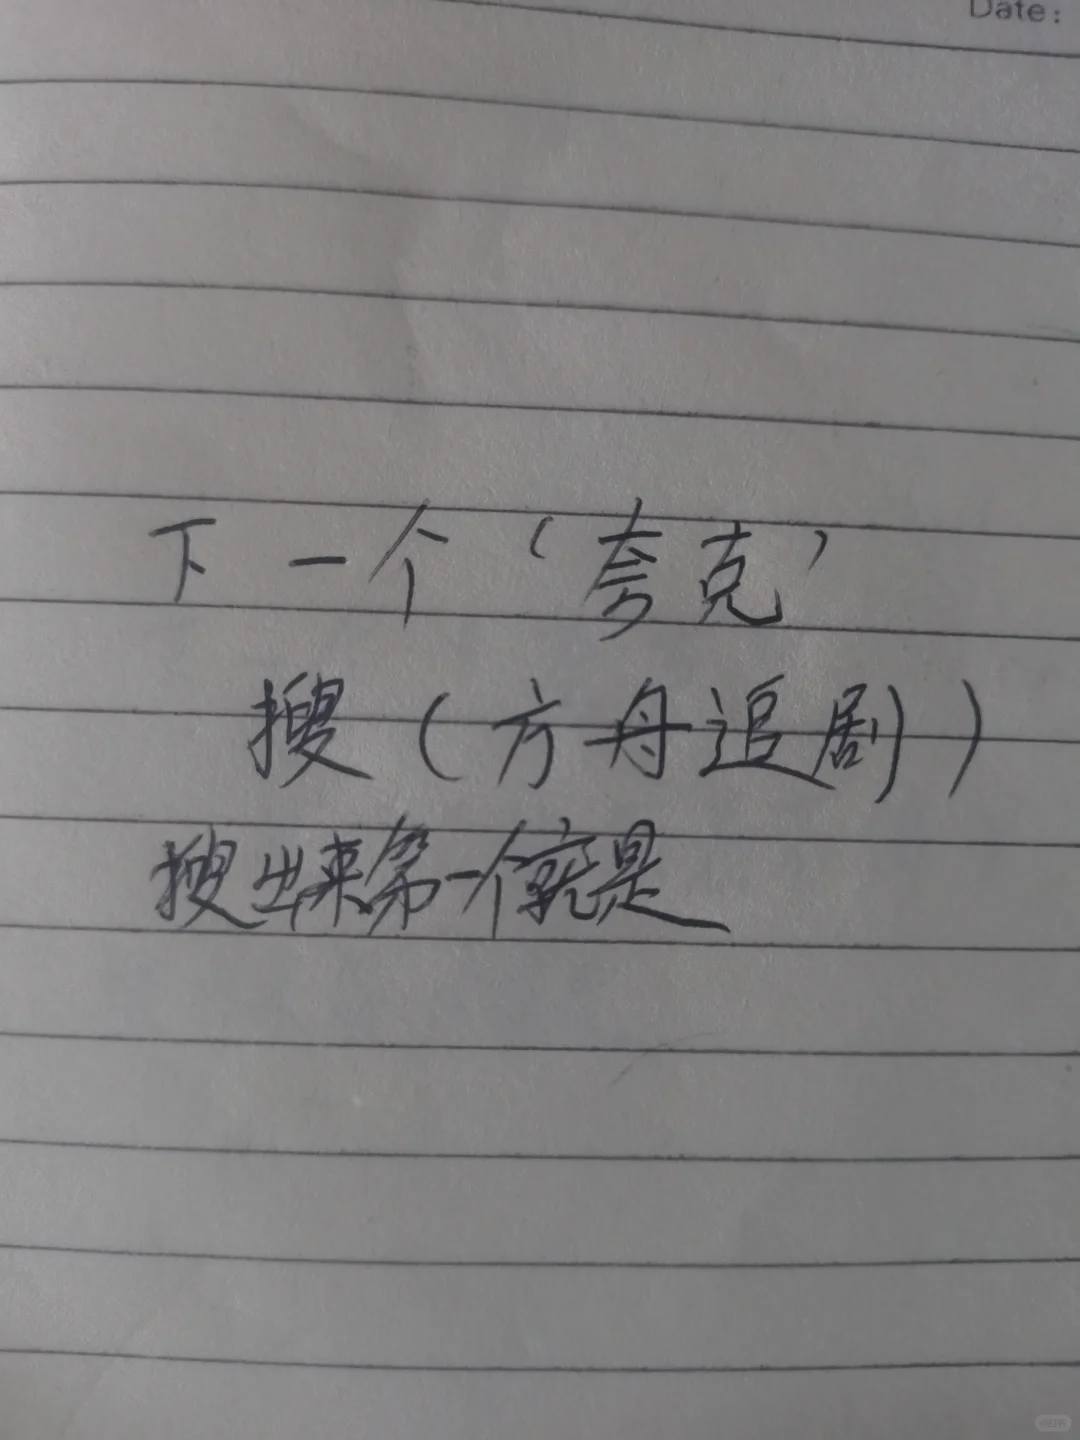 Date:
下一个‘夸克’
搜（方舟追剧）
搜出来第一个就是